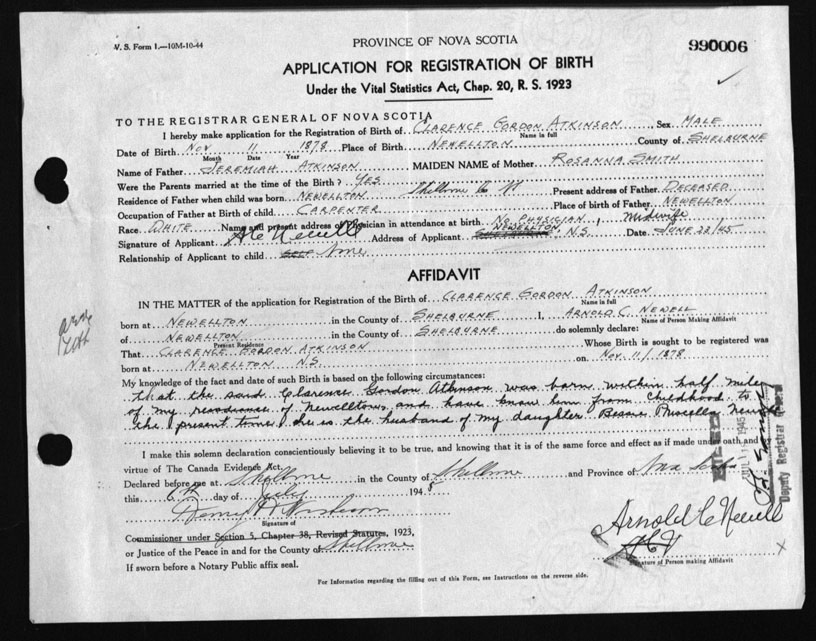 V. S. Form 1.—10M-10-44
PROVINCE OF NOVA SCOTIA
990006
APPLICATION FOR REGISTRATION OF BIRTH
Under the Vital Statistics Act, Chap. 20, R. S. 1923
TO THE REGISTRAR GENERAL OF NOVA SCOTIA
I hereby make application for the Registration of Birth of CLARENCE GORDON ATKINSON, Sex MALE
Name in full
Date of Birth NOV 11 1878 Place of Birth NEWELLTON County of SHELBURNE
Month Date Year
Name of Father JEREMIAH ATKINSON MAIDEN NAME of Mother ROSANNA SMITH
Were the Parents married at the time of the Birth? YES
Residence of Father when child was born NEWELLTON Shelburne Co Present address of Father DECEASED
Occupation of Father at Birth of child CARPENTER Place of birth of Father NEWELLTON
Race WHITE Name and present address of Physician in attendance at birth NO PHYSICIAN, midwife
Signature of Applicant A C Newell Address of Applicant NEWELLTON N.S. Date JUNE 22/45
Relationship of Applicant to child None
AFFIDAVIT
IN THE MATTER of the application for Registration of the Birth of CLARENCE GORDON ATKINSON
Name in full
born at NEWELLTON in the County of SHELBURNE I, ARNOLD C. NEWELL
Name of Person Making Affidavit
of NEWELLTON in the County of SHELBURNE do solemnly declare:
Present Residence
That CLARENCE GORDON ATKINSON Whose Birth is sought to be registered was
born at NEWELLTON N.S. on NOV. 11/1878
My knowledge of the fact and date of such Birth is based on the following circumstances:
that the said Clarence Gordon Atkinson was born within half mile
of my residence of Newellton, and have know him from childhood to
the present time. He is the husband of my daughter
I make this solemn declaration conscientiously believing it to be true, and knowing that it is of the same force and effect as if made under oath and
virtue of The Canada Evidence Act.
Declared before me at Shelburne in the County of Shelburne and Province of Nova Scotia
this 6th day of July 1945
Signature of
Commissioner under Section 5, Chapter 38, Revised Statutes, 1923,
or Justice of the Peace in and for the County of Shelburne
If sworn before a Notary Public affix seal.
Arnold C Newell
Signature of Person making Affidavit
For Information regarding the filling out of this Form, see Instructions on the reverse side.
Deputy Registrar